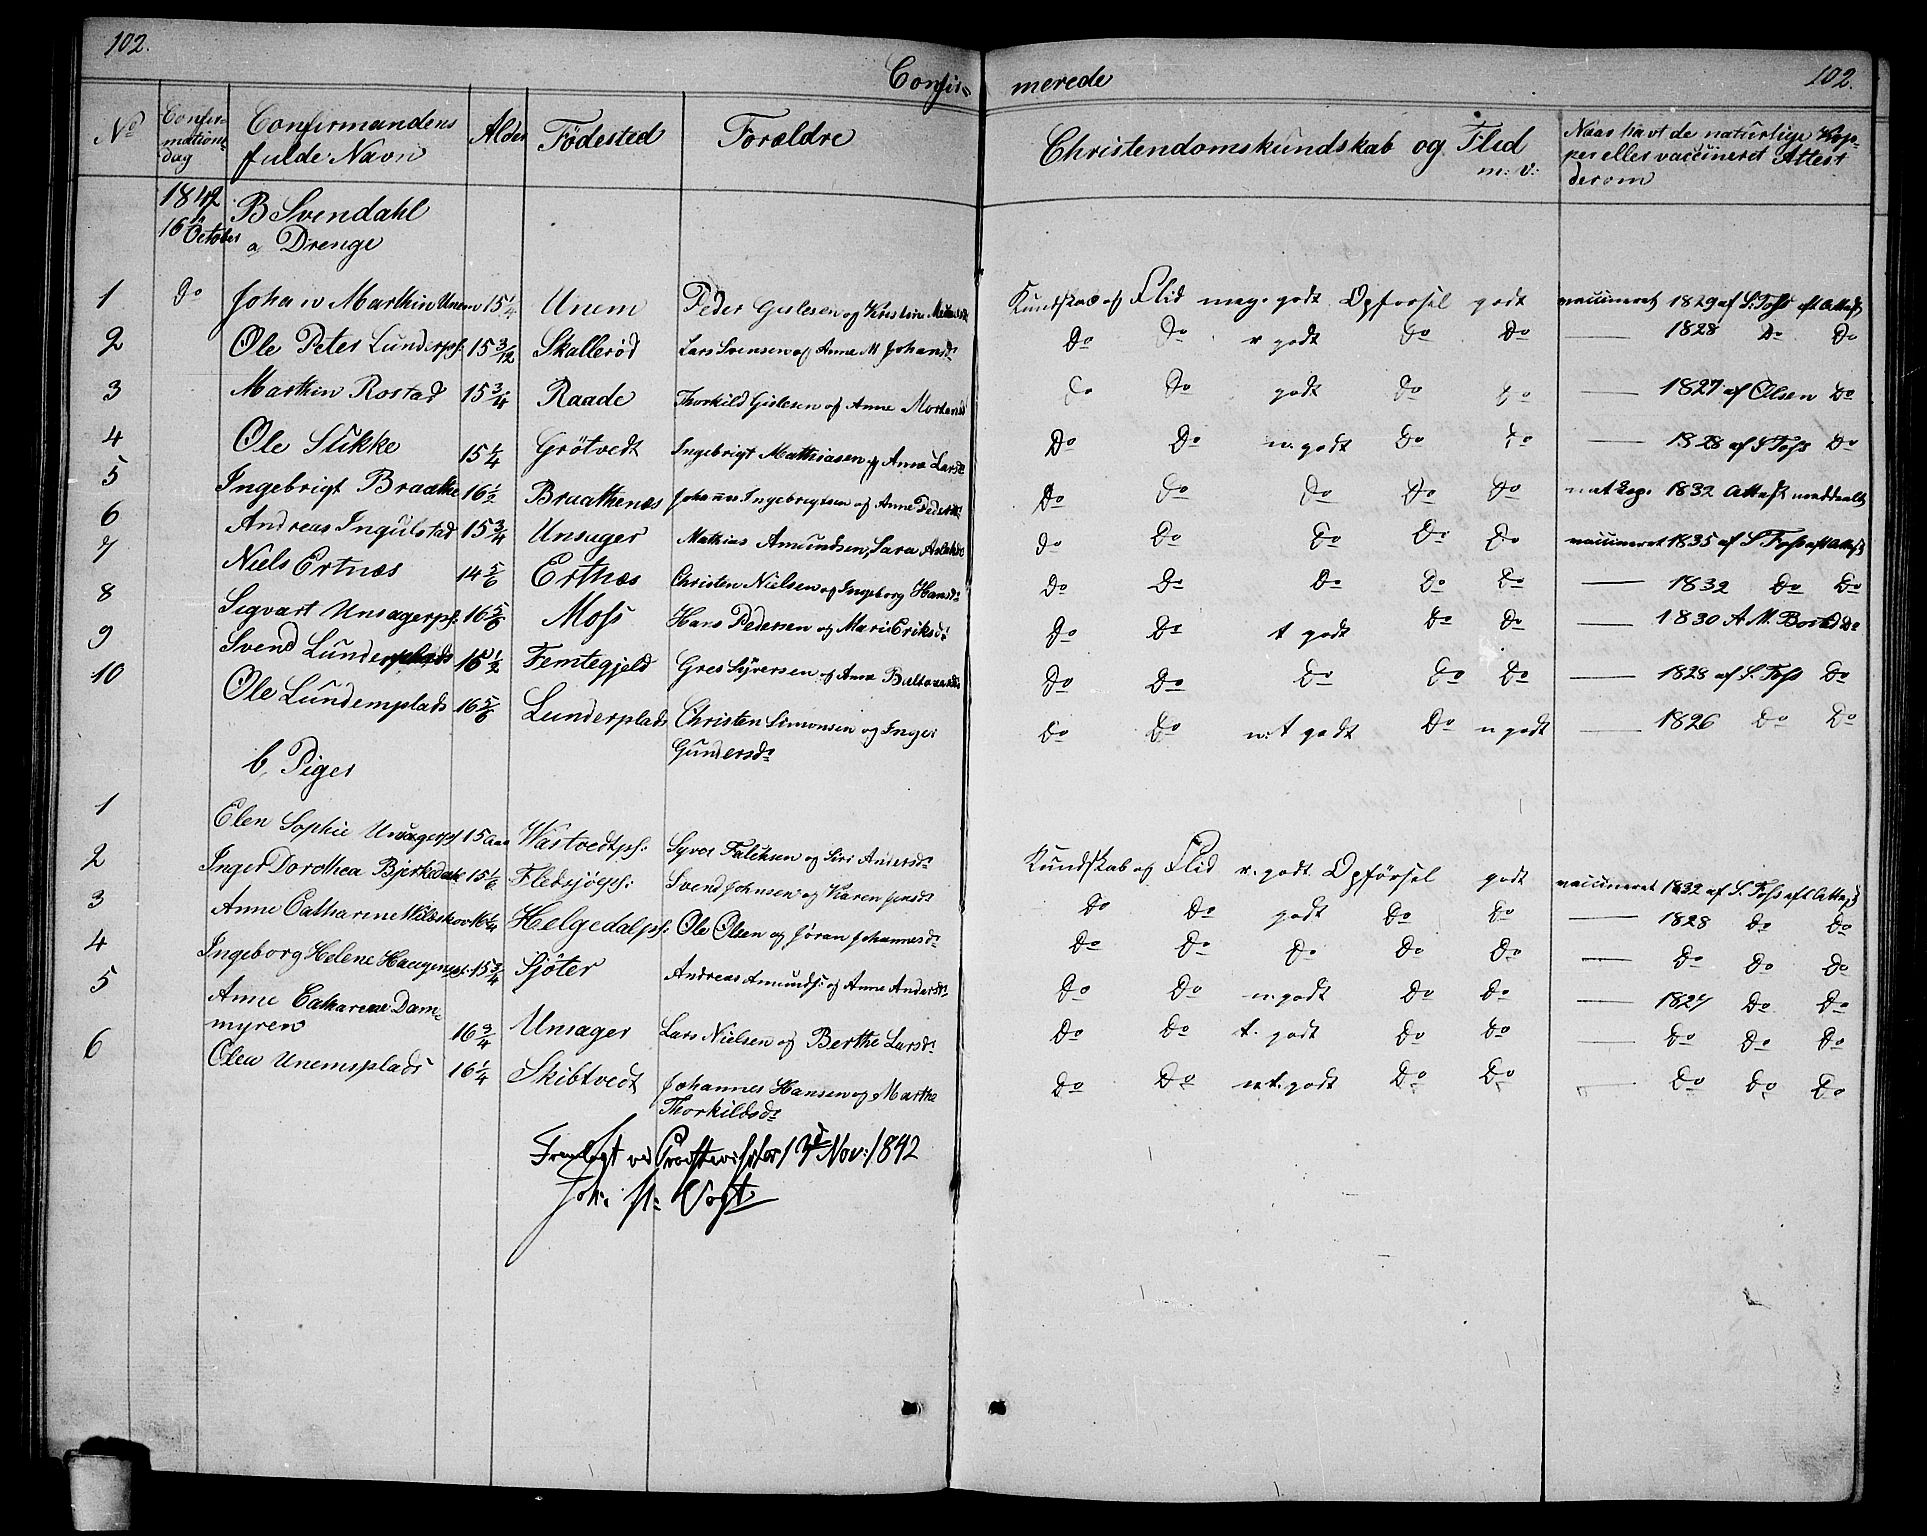 102.
Confir=
merede
102.
No
Confir-
mations-
dag
Confirmandens
fulde Navn
Alder
Födested
Forældre
Christendomskundskab og Flid
m: v:
Naar havt de naturlige Kop-
per eller vaccineret Attest
derom
1842
16 October
B Svendahl
a Drenge
1 Do Johan Marthin Unem 15 1/4 Unem Peder Gislesen og Kristine Kundskab og Flid meg. godt Opførsel godt vaccineret 1829 af S. Foss eft Attest
2 Ole Peter Lunderpl. 15 3/12 Skallerød Lars Svensen og Anne M Johansdr Do Do v godt Do Do — 1828 Do Do
3 Marthin Rostad 15 3/4 Raade Thorkild Gislesen og Anne Mortensd Do Do godt Do Do — 1827 af Olsen Do
4 Ole Slikke 15 1/4 Grötvedt Ingebrigt Mathiasen og Anne Larsdr Do Do n. godt Do Do — 1828 af S Foss Do
5 Ingebrigt Braathe 16 1/2 Braathenæs Johannes Ingebrigtsen og Anne Pedersdr Do Do Do Do Do nat kop. 1832 Attest meddeelt
6 Andreas Ingulstad 15 3/4 Unsager Mathias Amundsen, Sara Do Do Do Do Do vaccineret 1835 af S Foss eft Attest
7 Niels Ertnæs 14 5/6 Ertnæs Christen Nielsen og Ingeborg Hansdr Do Do Do Do Do — 1832 Do Do
8 Sigvart Unsagerpl. 16 5/6 Moss Hans Pedersen og Mari Eriksdr Do Do t godt Do Do — 1830 A. M. Do
9 Svend Lunderplads 16 1/2 Femtegjeld Gres Syversen og Anne Do Do Do Do Do — 1828 af S. Foss Do
10 Ole Lundemplads 16 5/6 Lunderplads Christen Simonsen og Inger Do Do n: t godt Do n godt — 1826 Do Do
Gundersdr
b, Piger
1 Elen Sophie Unsagerpl 15 Aar Wastvedtpl: Syver Falchsen og Siri Andersdr Kundskab og Flid v. godt Opførsel godt vaccineret 1832 af S. Foss eft Attest
2 Inger Dorothea Bjerkedahl 15 1/6 Flesjöepl: Svend Johnsen og Karen Jensdr Do Do godt Do Do — 1828 Do Do
3 Anne Catharine 16 1/4 Helgedalpl: Ole Olsen og Jöran Johannesdr Do Do Do Do Do — Do Do Do
4 Ingeborg Helene Haugenpl. 15 3/4 Sjöter Andreas Amunds: og Anne Andersdr Do Do n. godt Do Do — 1827 Do Do
5 Anne Catharine Dam-
myren 16 3/4 Unsager Lars Nielsen og Berthe Larsdr Do Do t. godt Do Do — Do Do Do
6 Olea Unemsplads 16 1/4 Skibtvedt Johannes Hansen og Marthe Do Do n t. godt Do Do — Do Do Do
Thorkildsdr
Fremlagt ved Provstevisitas 17d Nov: 1842
Joh. Vogt